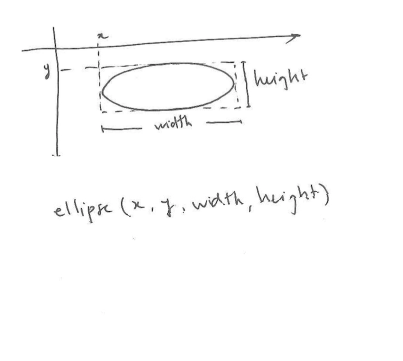 x
y
height
width
ellipse (x, y, width, height)